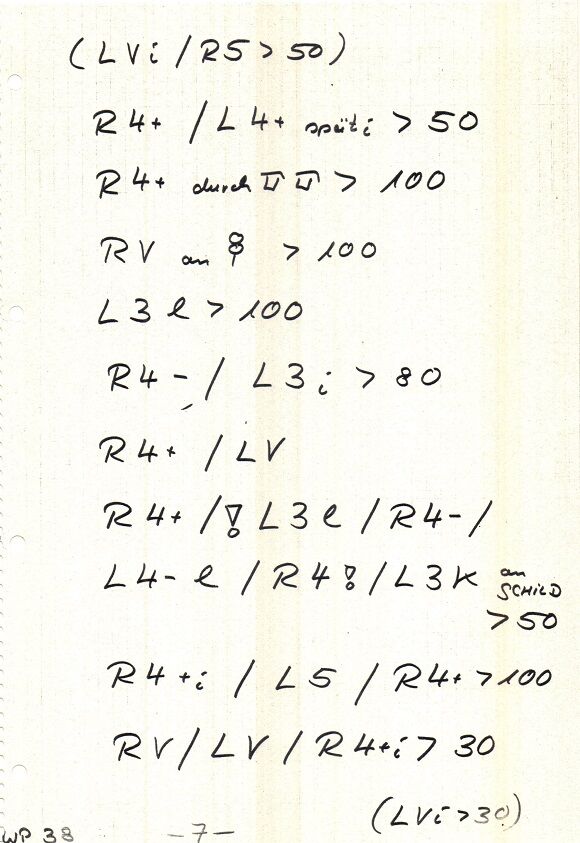 (LVi / R5 > 50)
R4+ / L4+ späti > 50
R4+ durch > 100
RV an > 100
L3l > 100
R4- / L3i > 80
R4+ / LV
R4+ / L3l / R4- /
L4-l / R4 / L3K an
SCHILD
> 50
R4+i / L5 / R4+ > 100
RV / LV / R4+i > 30
(LVi > 30)
WP 38 -7-